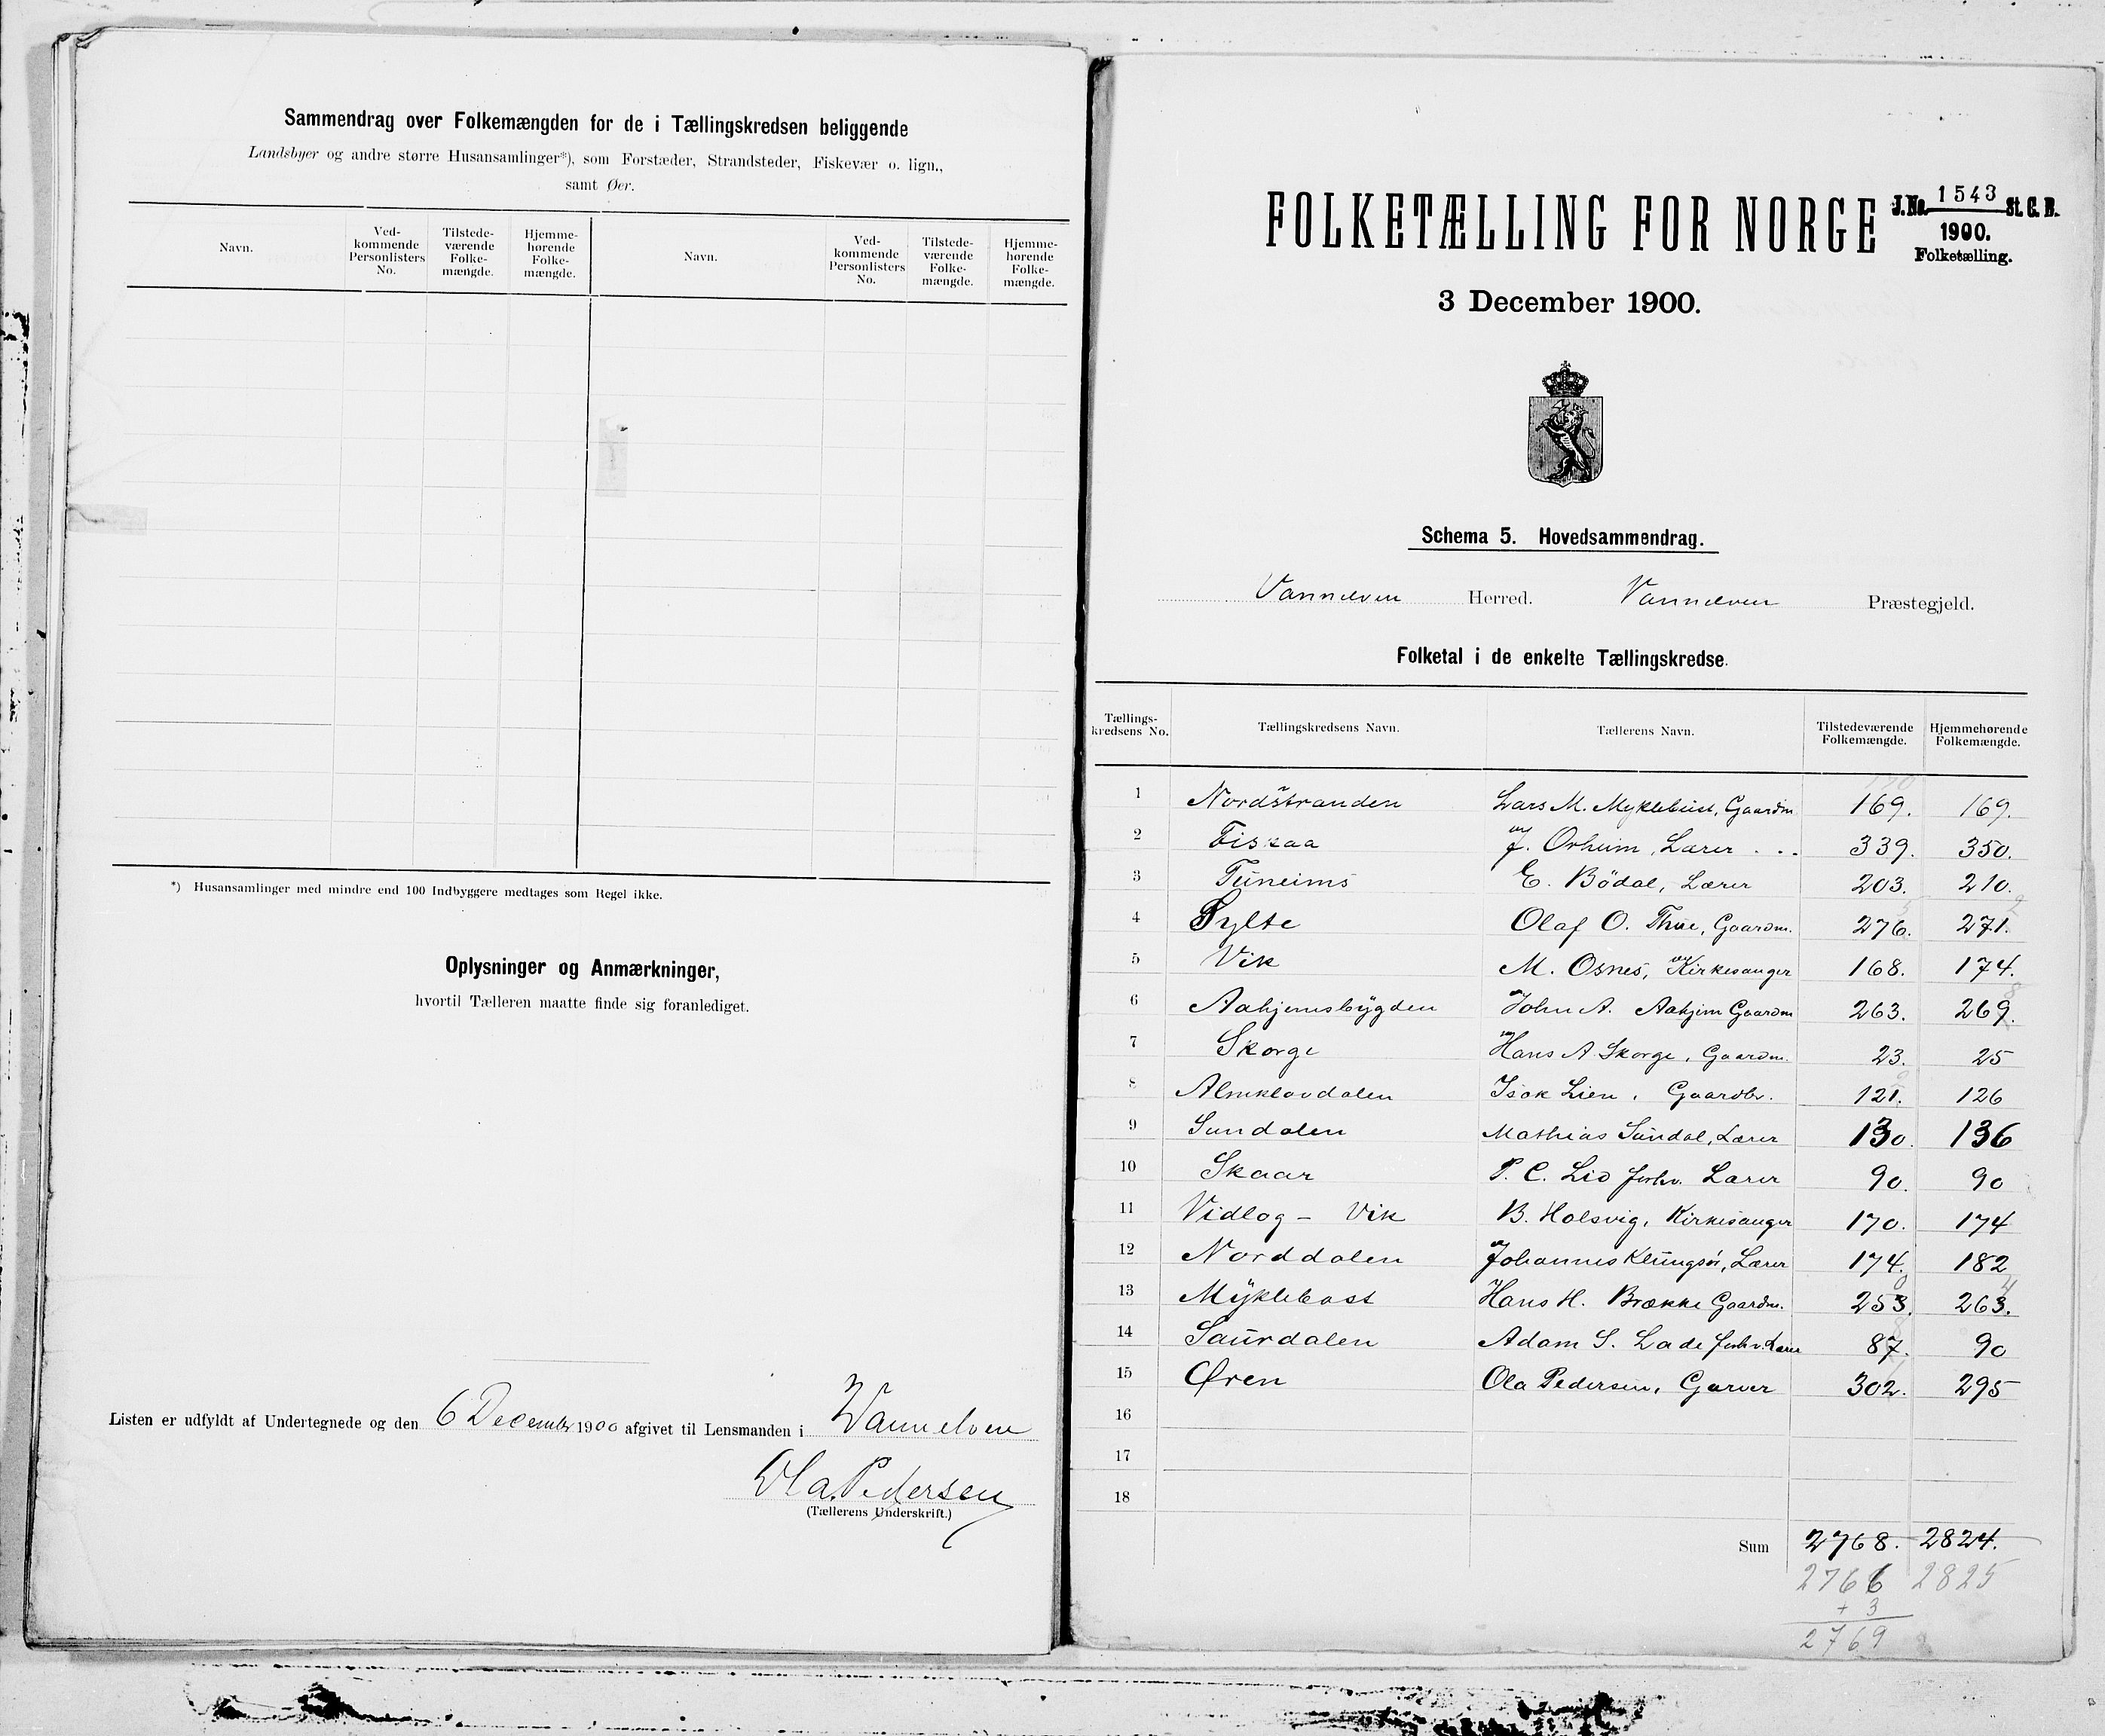 Sammendrag over Folkemængden for de i Tællingskredsen beliggende
Landsbyer og andre større Husansamlinger*), som Forstæder, Strandsteder, Fiskevær o. lign.,
samt Øer.
Navn. Ved-kommende Personlisters No. Tilstede-værende Folke-mængde. Hjemme-hørende Folke-mængde. Navn. Ved-kommende Personlisters No. Tilstede-værende Folke-mængde. Hjemme-hørende Folke-mængde.
*) Husansamlinger med mindre end 100 Indbyggere medtages som Regel ikke.
Oplysninger og Anmærkninger,
hvortil Tælleren maatte finde sig foranlediget.
Listen er udfyldt af Undertegnede og den 6 December 1900 afgivet til Lensmanden i Wannelven
Ola Pedersen
(Tællerens Underskrift.)
FOLKETÆLLING FOR NORGE
J. No. 1543 St. C. B.
1900.
Folketælling.
3 December 1900.
Schema 5. Hovedsammendrag.
Vannelven Herred. Vannelven Præstegjeld.
Folketal i de enkelte Tællingskredse.
Tællings-kredsens No. Tællingskredsens Navn. Tællerens Navn. Tilstedeværende Folkemængde. Hjemmehørende Folkemængde.
1 Nordstranden Lars M. Myklebust, Gaardm. 169. 169.
2 Fiskaa J. Orheim, Lærer . . . 339. 350.
3 Tuneims E. Bödal, Lærer 203. 210.
4 Sylte Olaf O. Thue, Gaardm. 276. 271.
5 Vik M. Osnes, Kirkesanger 168. 174.
6 Aahjemsbygden John A. Aahjem Gaardm 263. 269.
7 Skorge Hans A Skorge, Gaardm. 23. 25
8 Almklovdalen Isak Lien, Gaardbr. 121. 126
9 Sundalen Mathias Sundal, Lærer 130. 136
10 Skaar P. C. Lid forhv. Lærer 90. 90
11 Vidlog - Vik B. Holsvig, Kirkesanger 170. 174
12 Norddalen Johannes Klungsör, Lærer 174. 182
13 Myklebost Hans H. Brække Gaardm. 253. 263.
14 Saurdalen Adam S. Lade forhv. Lærer 87. 90
15 Øren Ola Pedersen, Garver 302. 295
16
17
18
Sum 2768. 2824.
2766 2825
+ 3
2769